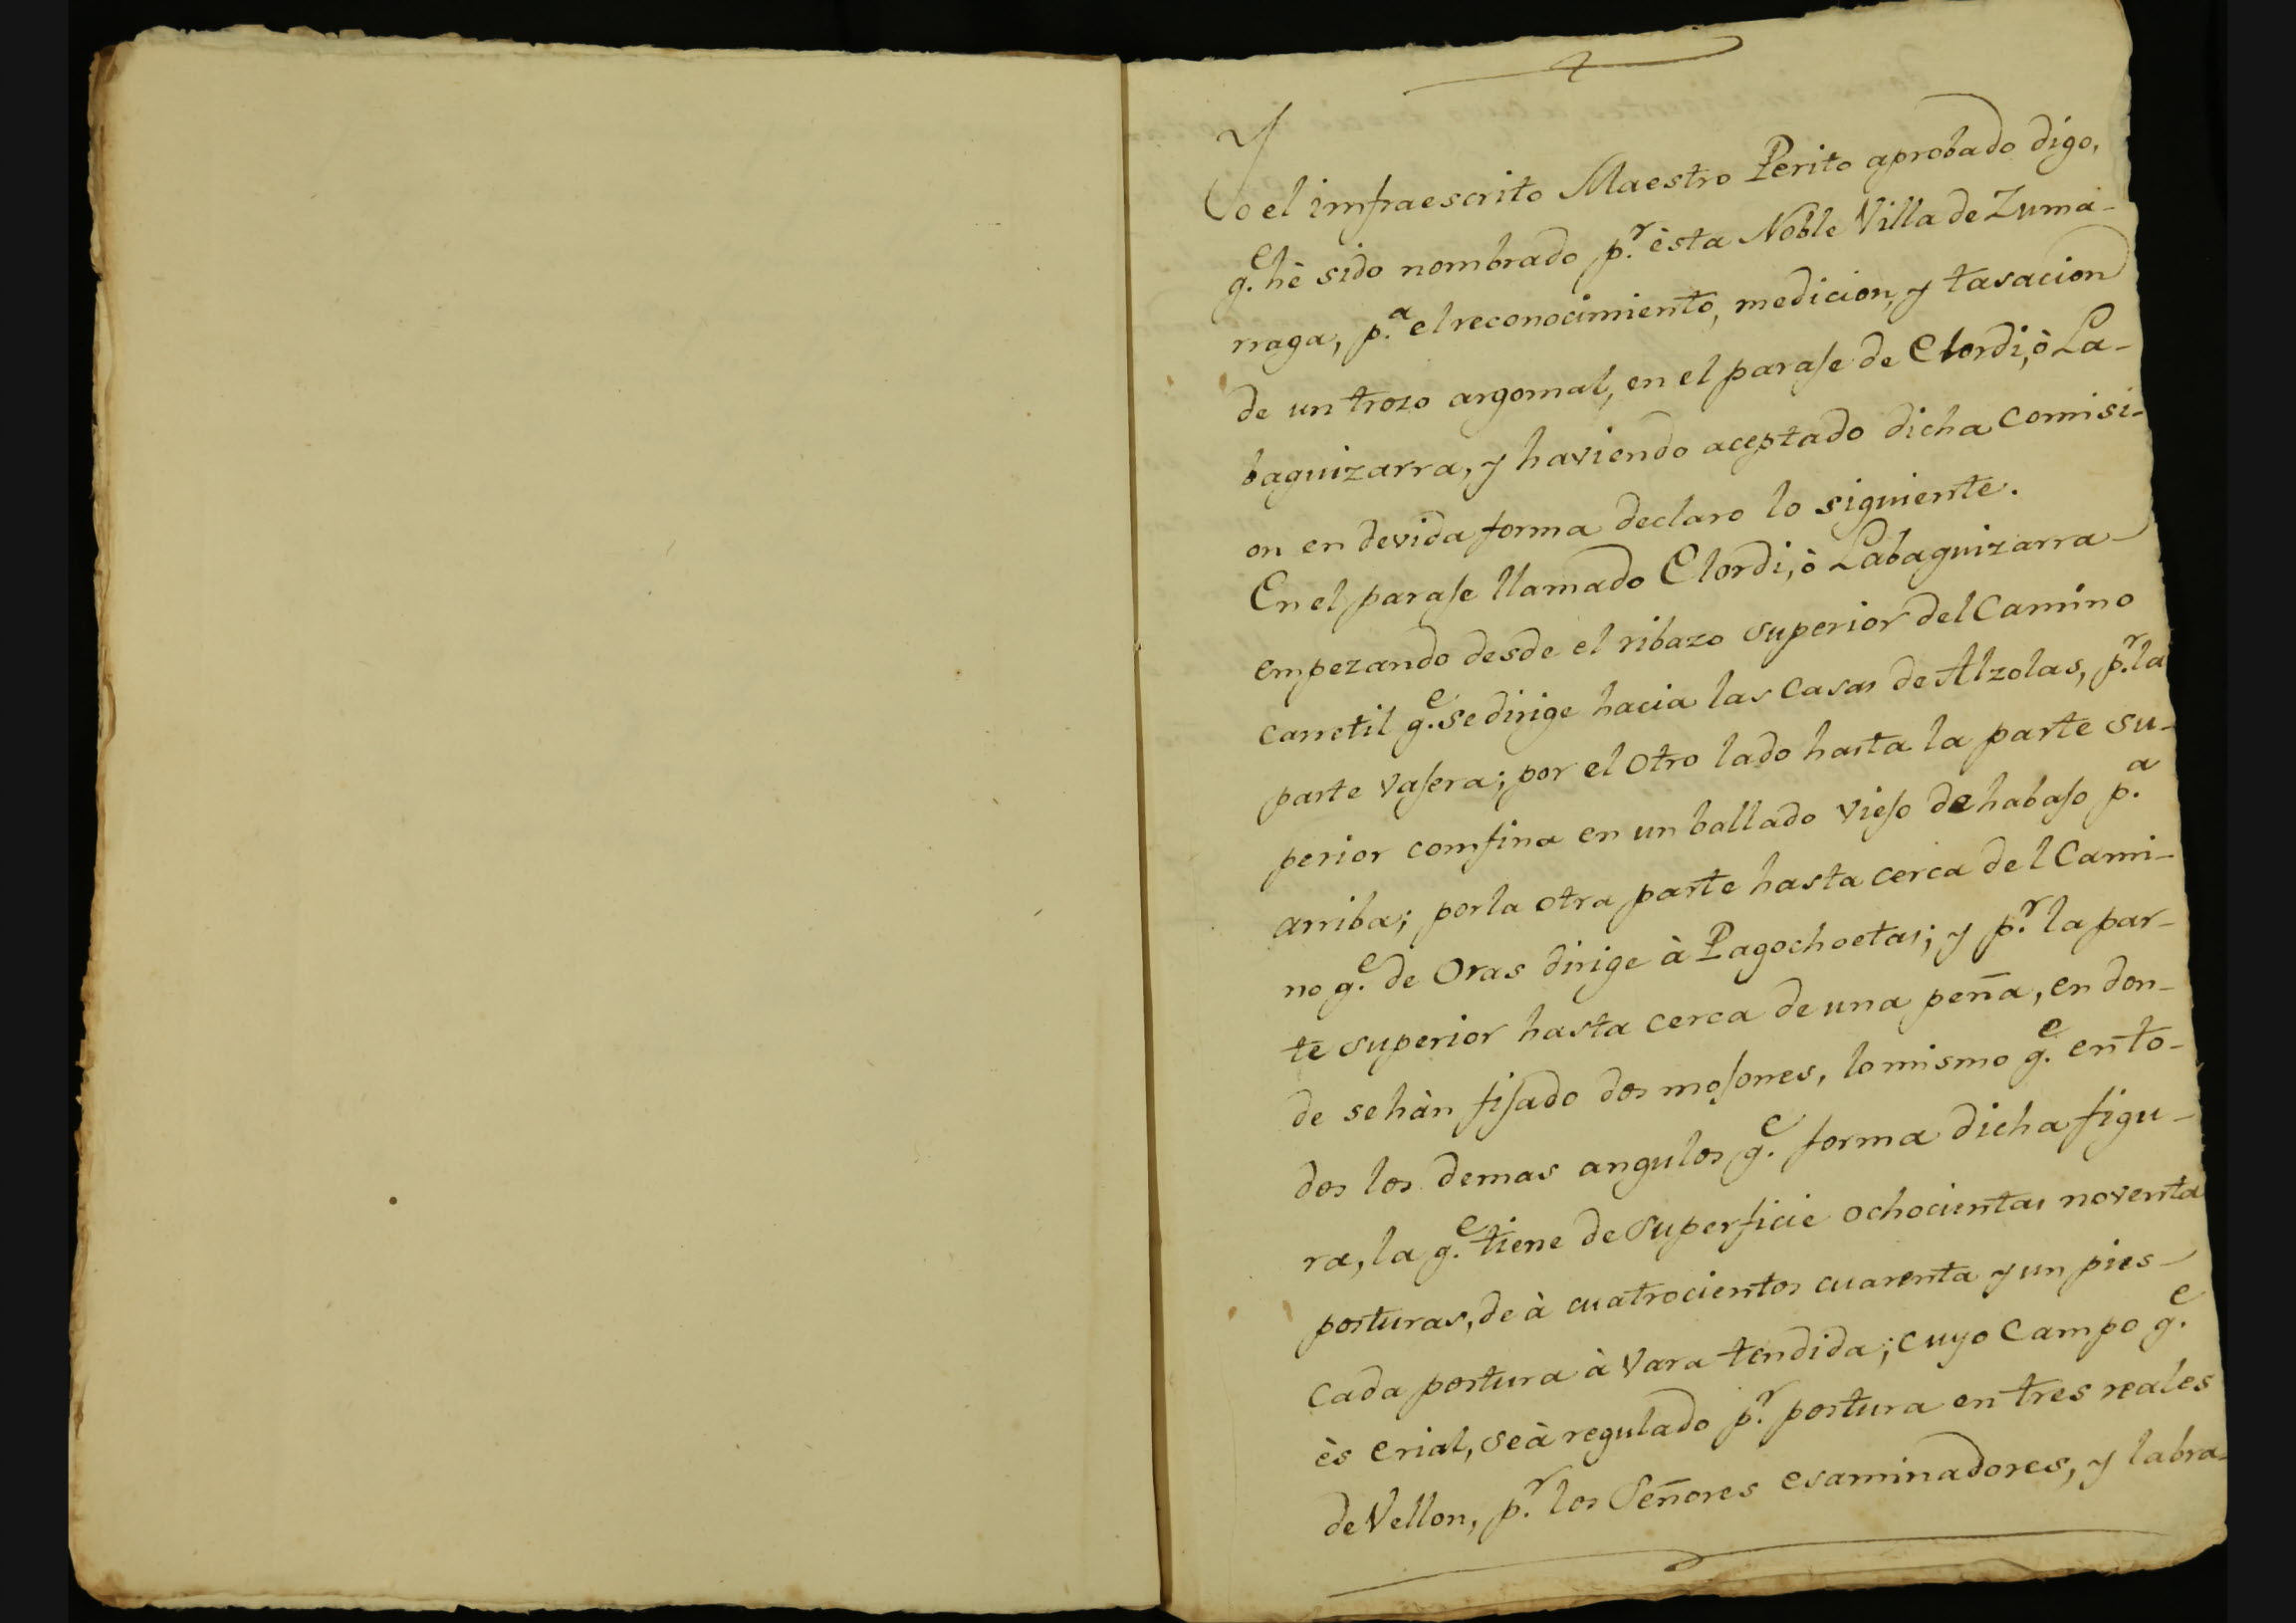 Yo el imfraescrito Maestro Perito aprobado digo,
q.e hè sido nombrado p.r èsta Noble Villa de Zuma-
rraga, p.a el reconocimiento, medicion, y tasacion
de un trozo argomal, en el paraje de Elordi, ò La-
baguizarra, y haviendo aceptado dicha Comisi-
on en devida forma declaro lo siguiente.
En el paraje llamado Elordi, ò Labaguizarra
empezando desde el ribazo superior del Camino
carretil q.e se dirige hacia las Casas de Alzolas, p.r la
parte vajera; por el otro lado hasta la parte su-
perior comfina en un ballado viejo de habajo p.a
arriba; por la otra parte hasta cerca del Cami-
no q.e de Oras dirige à Pagochoetas; y p.r la par-
te superior hasta cerca de una peña, en don-
de se hàn fijado dos mojones, lo mismo q.e en to-
dos los demas angulos q.e forma dicha figu-
ra, la q.e tiene de superficie ochocientas noventa
posturas, de à cuatrocientos cuarenta y un pies
cada postura à vara tendida; cuyo Campo q.e
ès erial, se à regulado p.r postura en tres reales
de Vellon, p.r los Señores esaminadores, y labra-